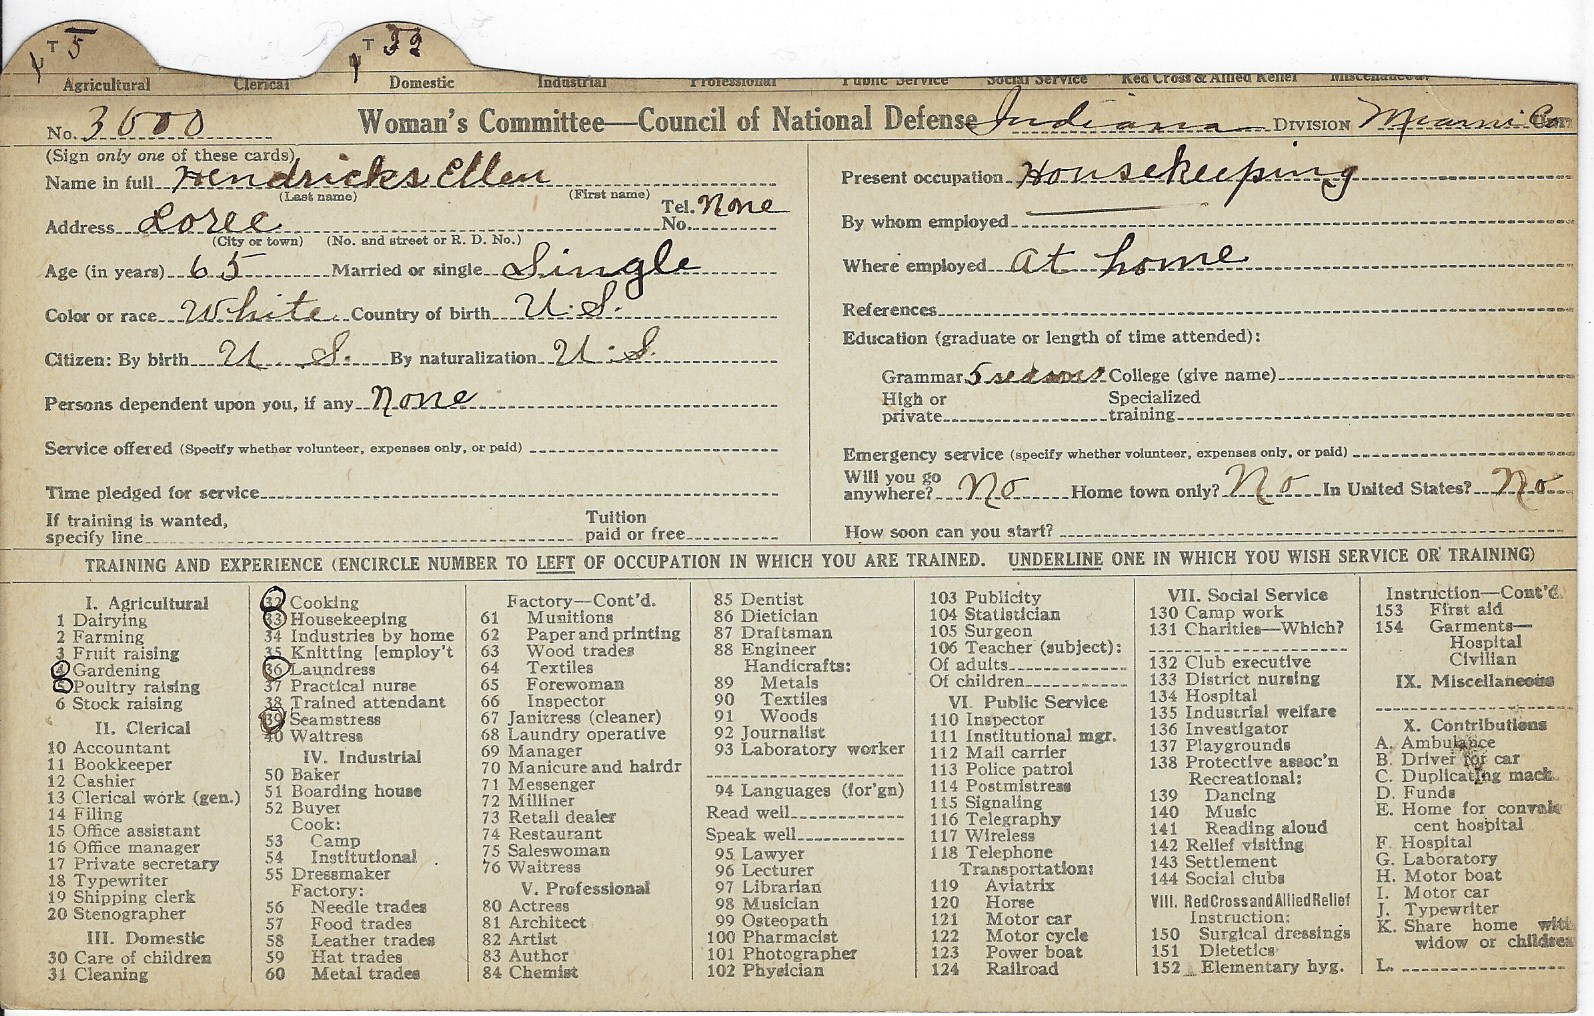 T 5 T 32
Agricultural Clerical Domestic Industrial Professional Public Service Social Service Red Cross & Allied Relief Miscellaneous
No. 3600 Woman's Committee—Council of National Defense Indiana DIVISION Miami Co.
(Sign only one of these cards)
Name in full Hendricks Ellen
(Last name) (First name)
Address Loree Tel. No. None
(City or town) (No. and street or R. D. No.)
Age (in years) 65 Married or single Single
Color or race White Country of birth U.S.
Citizen: By birth U S. By naturalization U.S.
Persons dependent upon you, if any None
Service offered (Specify whether volunteer, expenses only, or paid)
Time pledged for service
If training is wanted, specify line Tuition paid or free
Present occupation Housekeeping
By whom employed
Where employed At home
References
Education (graduate or length of time attended):
Grammar 5 seasons College (give name)
High or private Specialized training
Emergency service (specify whether volunteer, expenses only, or paid)
Will you go anywhere? No Home town only? No In United States? No
How soon can you start?
TRAINING AND EXPERIENCE (ENCIRCLE NUMBER TO LEFT OF OCCUPATION IN WHICH YOU ARE TRAINED. UNDERLINE ONE IN WHICH YOU WISH SERVICE OR TRAINING)
I. Agricultural
1 Dairying
2 Farming
3 Fruit raising
4 Gardening
5 Poultry raising
6 Stock raising
II. Clerical
10 Accountant
11 Bookkeeper
12 Cashier
13 Clerical work (gen.)
14 Filing
15 Office assistant
16 Office manager
17 Private secretary
18 Typewriter
19 Shipping clerk
20 Stenographer
III. Domestic
30 Care of children
31 Cleaning
32 Cooking
33 Housekeeping
34 Industries by home
35 Knitting [employ't
36 Laundress
37 Practical nurse
38 Trained attendant
39 Seamstress
40 Waitress
IV. Industrial
50 Baker
51 Boarding house
52 Buyer
Cook:
53 Camp
54 Institutional
55 Dressmaker
Factory:
56 Needle trades
57 Food trades
58 Leather trades
59 Hat trades
60 Metal trades
Factory—Cont'd.
61 Munitions
62 Paper and printing
63 Wood trades
64 Textiles
65 Forewoman
66 Inspector
67 Janitress (cleaner)
68 Laundry operative
69 Manager
70 Manicure and hairdr
71 Messenger
72 Milliner
73 Retail dealer
74 Restaurant
75 Saleswoman
76 Waitress
V. Professional
80 Actress
81 Architect
82 Artist
83 Author
84 Chemist
85 Dentist
86 Dietician
87 Draftsman
88 Engineer
Handicrafts:
89 Metals
90 Textiles
91 Woods
92 Journalist
93 Laboratory worker
94 Languages (for'gn)
Read well
Speak well
95 Lawyer
96 Lecturer
97 Librarian
98 Musician
99 Osteopath
100 Pharmacist
101 Photographer
102 Physician
103 Publicity
104 Statistician
105 Surgeon
106 Teacher (subject):
Of adults
Of children
VI. Public Service
110 Inspector
111 Institutional mgr.
112 Mail carrier
113 Police patrol
114 Postmistress
115 Signaling
116 Telegraphy
117 Wireless
118 Telephone
Transportation:
119 Aviatrix
120 Horse
121 Motor car
122 Motor cycle
123 Power boat
124 Railroad
VII. Social Service
130 Camp work
131 Charities—Which?
132 Club executive
133 District nursing
134 Hospital
135 Industrial welfare
136 Investigator
137 Playgrounds
138 Protective assoc'n
Recreational:
139 Dancing
140 Music
141 Reading aloud
142 Relief visiting
143 Settlement
144 Social clubs
VIII. Red Cross and Allied Relief
Instruction:
150 Surgical dressings
151 Dietetics
152 Elementary hyg.
Instruction—Cont'd.
153 First aid
154 Garments—
Hospital
Civilian
IX. Miscellaneous
X. Contributions
A. Ambulance
B. Driver for car
C. Duplicating mach.
D. Funds
E. Home for convales
cent hospital
F. Hospital
G. Laboratory
H. Motor boat
I. Motor car
J. Typewriter
K. Share home with
widow or children
L.